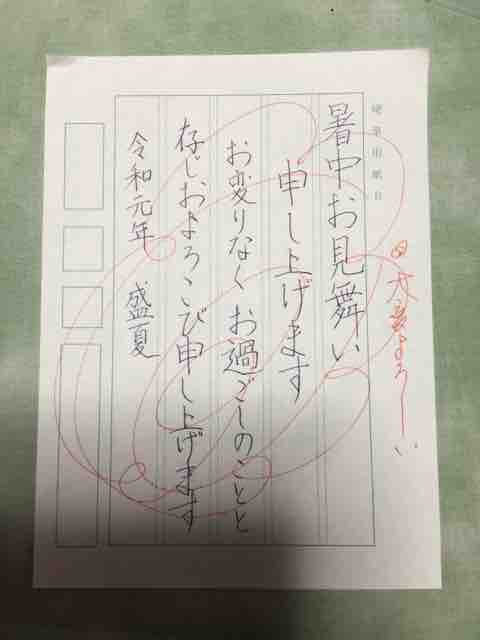 硬筆用紙B
暑中お見舞い
申し上げます
お変りなく お過ごしのことと
存じおよろこび申し上げます
令和元年 盛夏